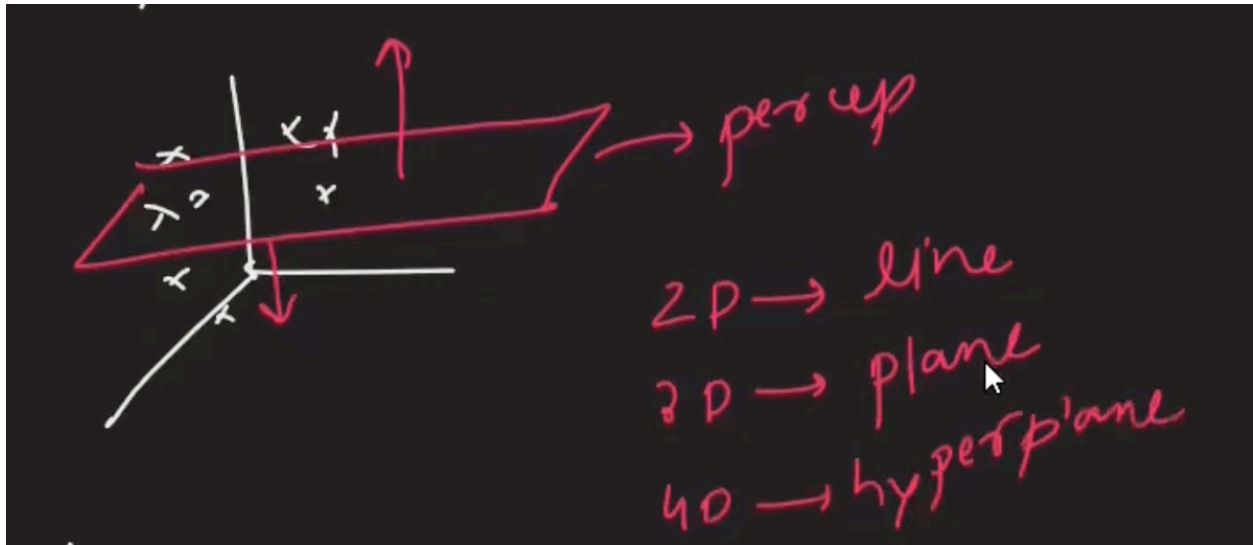 2D → line
3D → plane
4D → hyperplane